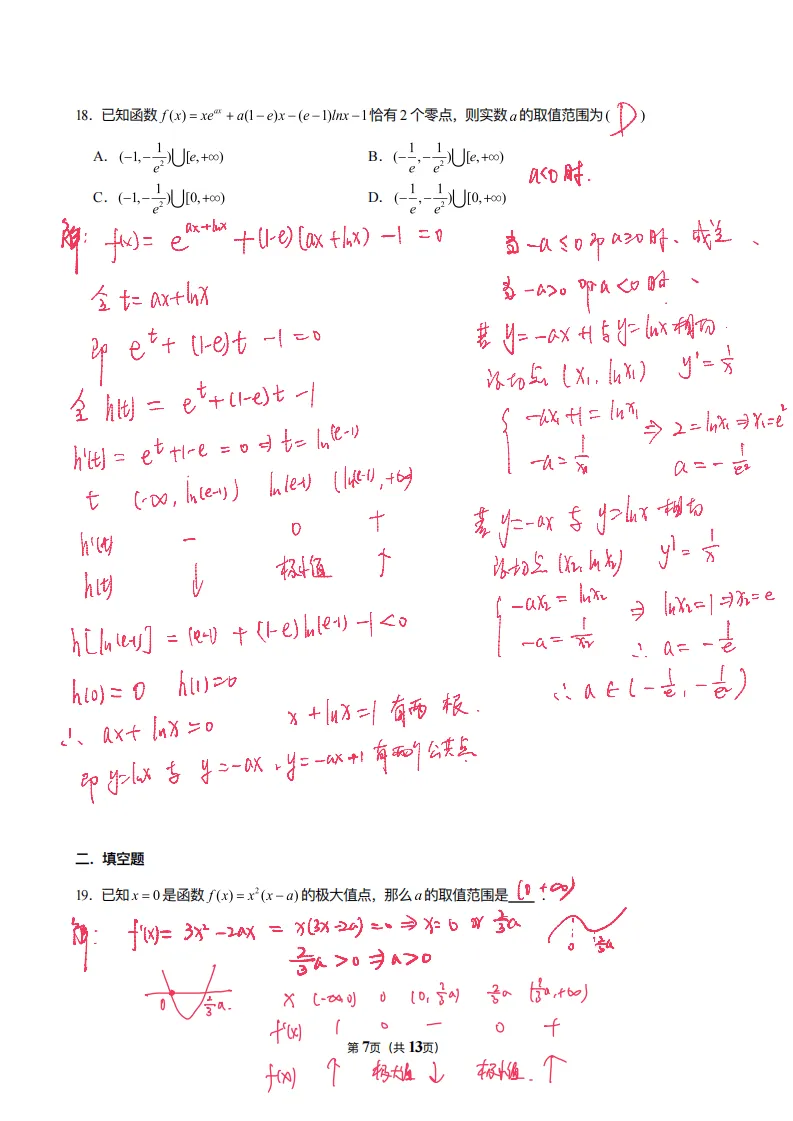 18．已知函数 f(x) = xe^{ax} + a(1−e)x − (e−1)lnx − 1恰有2个零点，则实数a的取值范围为( D )
A．(−1,−1/e²)⋃[e,+∞) B．(−1/e,−1/e²)⋃[e,+∞)
C．(−1,−1/e²)⋃[0,+∞) D．(−1/e,−1/e²)⋃[0,+∞)
a<0时.
解: f(x) = e^{ax+lnx} + (1-e)(ax+lnx) -1 =0
令 t= ax+lnx
即 e^t + (1-e)t -1=0
令 h(t) = e^t+(1-e)t -1
h'(t) = e^t+1-e =0 ⇒ t= ln(e-1)
t (-∞, ln(e-1)) ln(e-1) (ln(e-1),+∞)
h'(t) - 0 +
h(t) ↓ 极小值 ↑
h[ln(e-1)] = (e-1) + (1-e)ln(e-1) -1<0
h(0)=0 h(1)=0
∴ ax+ lnx=0 x+lnx=1 有两根.
即 y=lnx 与 y=-ax, y=-ax+1 有两个公共点
当 -a≤0 即 a≥0 时、成立、
当 -a>0 即 a<0 时、
若 y=-ax+1 与 y=lnx 相切.
设切点 (x₁, lnx₁) y'=1/x
{ -ax₁+1=lnx₁ ⇒ 2=lnx₁ ⇒ x₁=e²
-a=1/x₁ a=-1/e²
若 y=-ax 与 y=lnx 相切
设切点 (x₂, lnx₂) y'=1/x
{ -ax₂ = lnx₂ ⇒ lnx₂=1 ⇒ x₂=e
-a=1/x₂ ∴ a= -1/e
∴ a∈(-1/e, -1/e²)
二．填空题
19．已知 x = 0是函数 f(x) = x²(x−a)的极大值点，那么a的取值范围是 (0 +∞) ．
解: f'(x)= 3x²-2ax = x(3x-2a)=0 ⇒ x=0 或 2/3a
2/3a>0 ⇒ a>0
0 2/3a
0 2/3a.
x (-∞ 0) 0 (0, 2/3a) 2/3a (2/3a,+∞)
f'(x) 1 0 - 0 +
f(x) ↑ 极大值 ↓ 极小值. ↑
第 7页（共 13页）